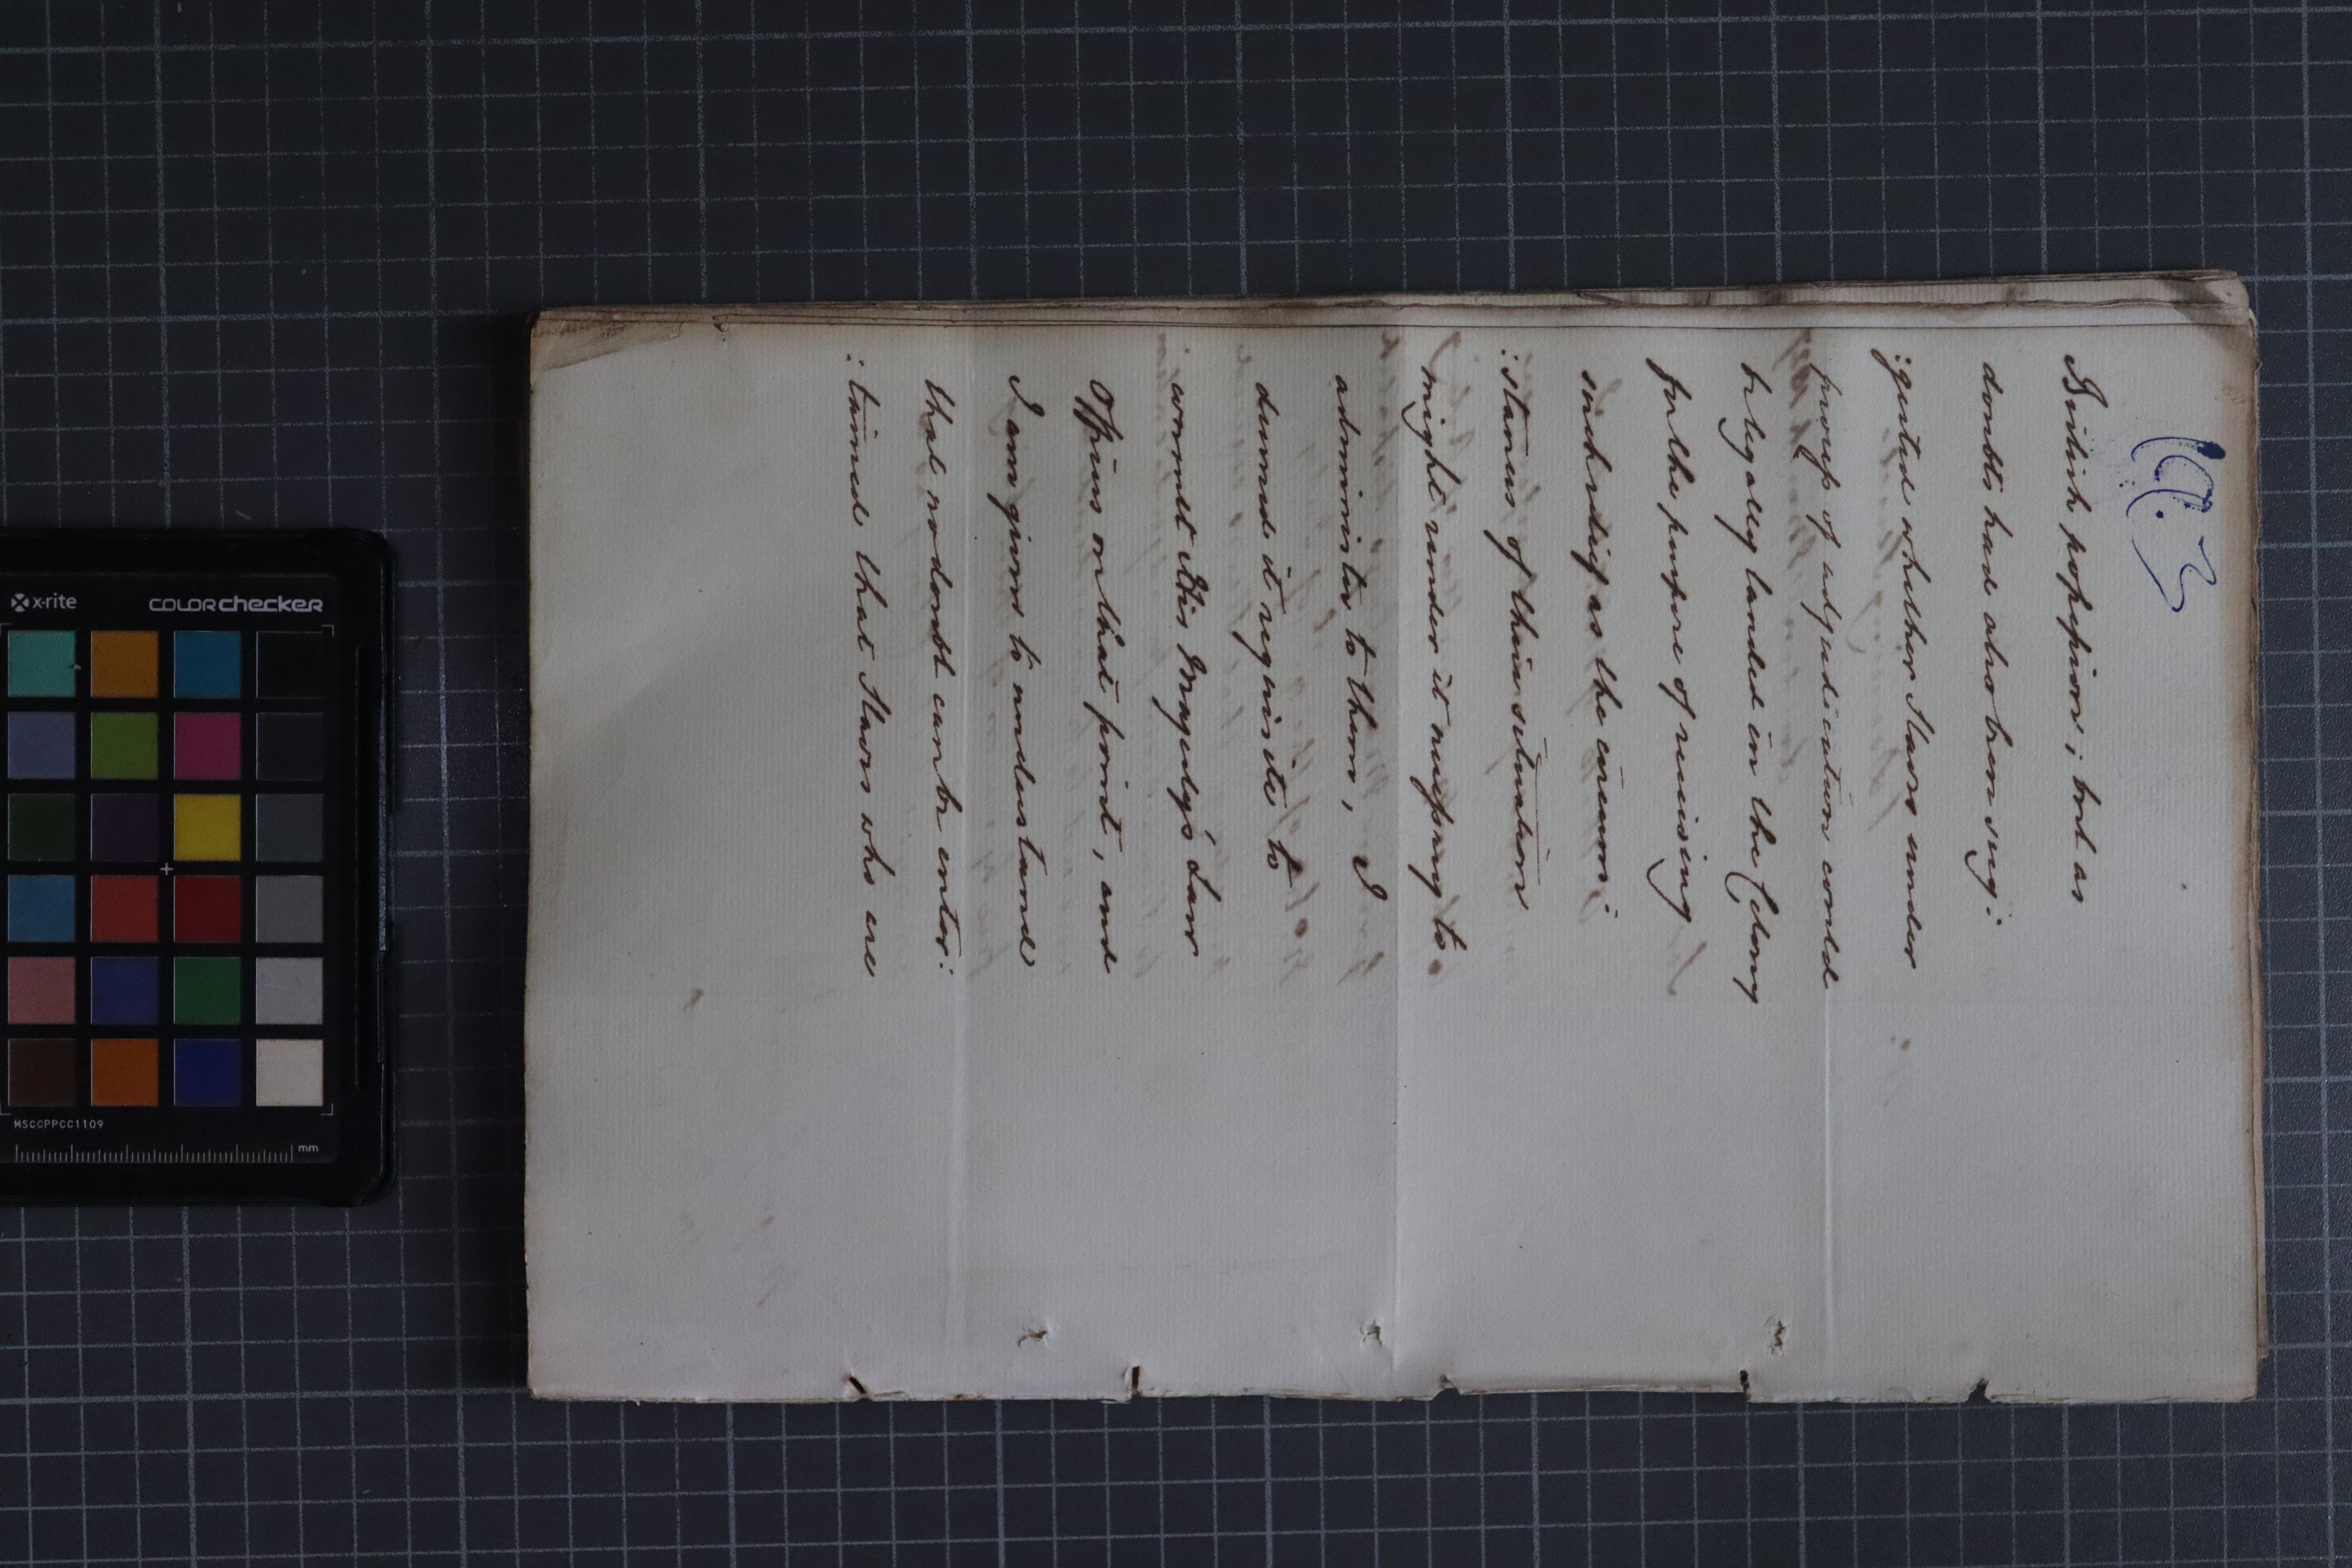 British possession; but as
doubts had also been sug:
:gested whether Slaves under
process of adjudication could
be legally landed in the Colony
for the purpose of receiving
such relief as the circum:
:stances of their situation
might render it necessary to
administer to them, I
deemed it requisite to
consult His Majesty's Law
Officers on that point, and
I am given to understand
that no doubt can be enter:
:tained that Slaves who are
x-rite
colorchecker
MSCCPPCC1109
mm